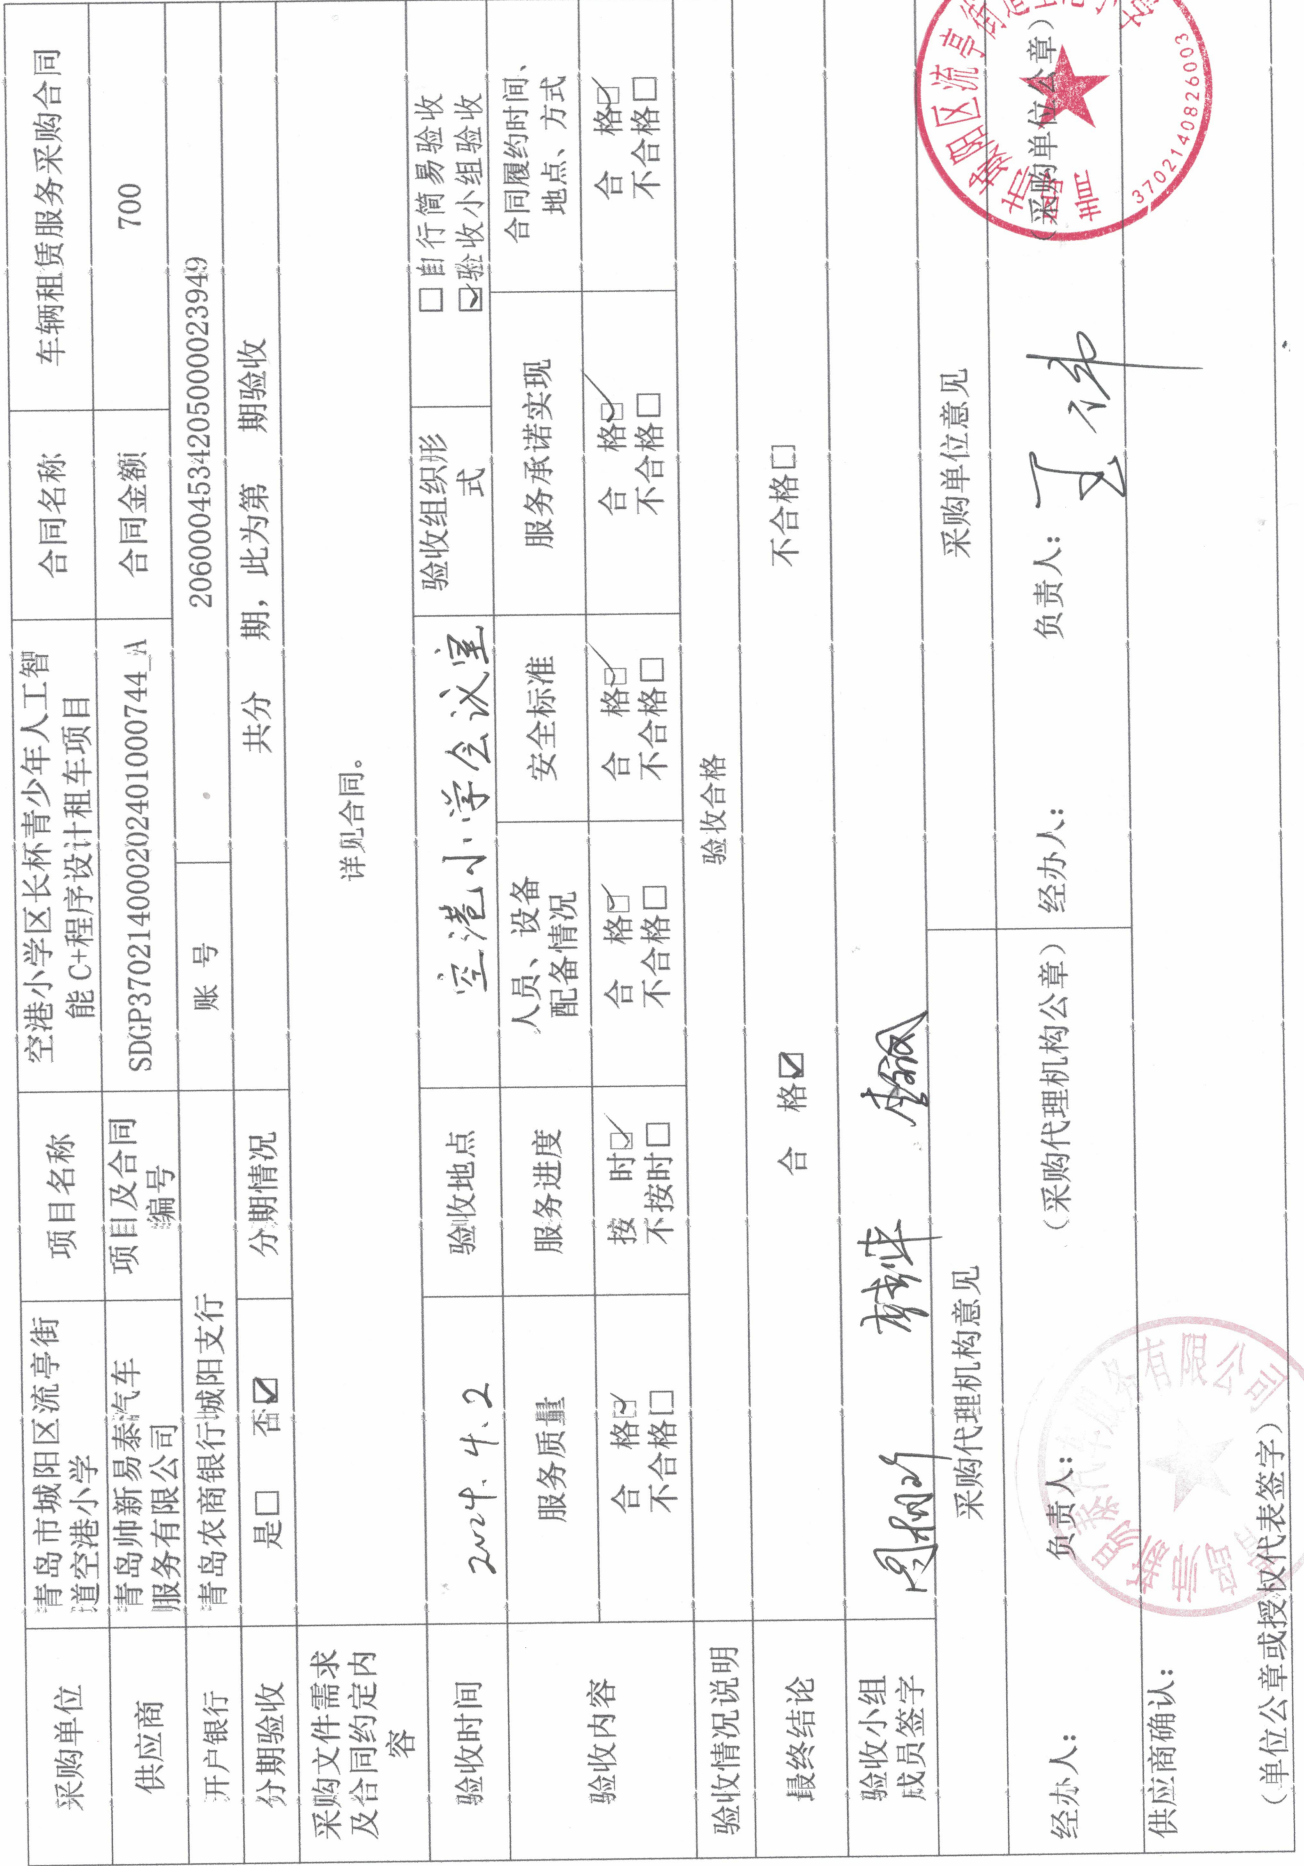 采购单位 青岛市城阳区流亭街
道空港小学 项目名称 空港小学区长杯青少年人工智
能 C+程序设计租车项目 合同名称 车辆租赁服务采购合同
供应商 青岛帅新易泰汽车
服务有限公司 项目及合同
编号 SDGP370214000202401000744_A 合同金额 700
开户银行 青岛农商银行城阳支行 账 号 2060004534205000023949
分期验收 是□ 否☑ 分期情况 共分 期，此为第 期验收
采购文件需求
及合同约定内
容 详见合同。
验收时间 2024.4.2 验收地点 空港小学会议室 验收组织形
式 □自行简易验收
☑验收小组验收
验收内容 服务质量 服务进度 人员、设备
配备情况 安全标准 服务承诺实现 合同履约时间、
地点、方式
合 格☑ 按 时☑ 合 格☑ 合 格☑ 合 格☑ 合 格☑
不合格□ 不按时□ 不合格□ 不合格□ 不合格□ 不合格□
验收情况说明 验收合格
最终结论 合 格☑ 不合格□
验收小组
成员签字
采购代理机构意见 采购单位意见
经办人： 负责人： （采购代理机构公章） 经办人： 负责人： 王伟 （采购单位公章）
3702140826003
供应商确认：
（单位公章或授权代表签字）